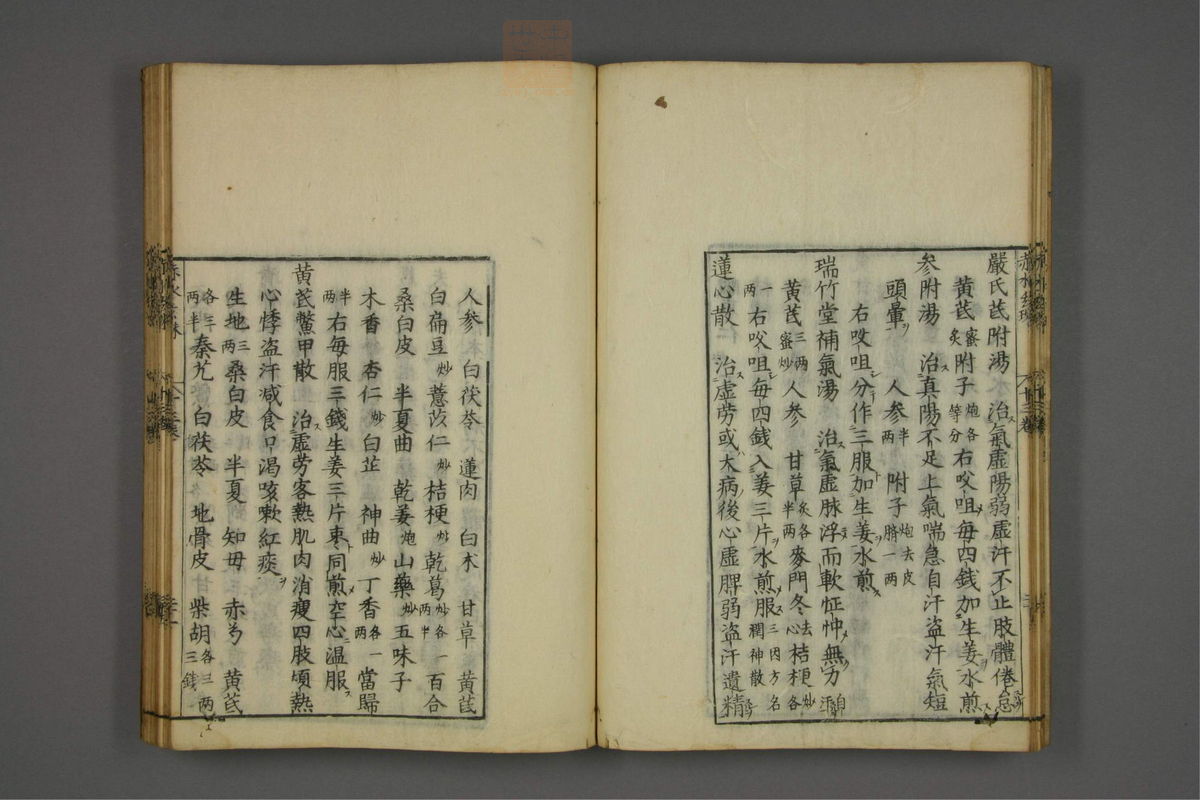 嚴氏芪附湯 治氣虛陽弱虛汗不止肢體倦怠
黄芪蜜炙附子炮各等分右㕮咀每四錢加生姜水煎
参附湯 治真陽不足上氣喘急自汗盗汗氣短
頭暈 人参半两 附子炮去皮臍一两
右㕮咀分作三服加生姜水煎
瑞竹堂補氣湯 治氣虛脉浮而軟怔忡無力自汗
黄芪三两蜜炒人参 甘草炙各半两麥門冬去心桔梗炒各
一两右㕮咀每四錢入姜三片水煎服
蓮心散 治虛劳或大病後心虛脾弱盗汗遺精
人参 白茯苓 蓮肉 白术 甘草 黄芪
白扁豆炒薏苡仁炒桔梗炒乾葛炒各一两半百合
桑白皮 半夏曲 乾姜炮山藥炒五味子
木香 杏仁炒白芷 神曲炒丁香各一两當歸
半两右每服三錢生姜三片棗同煎空心温服
黄芪鱉甲散 治虛劳客熱肌肉消瘦四肢煩熱
心悸盗汗减食口渴咳嗽紅痰
生地三两桑白皮 半夏 知母 赤芍 黄芪
各三两半秦艽 白茯苓 地骨皮 柴胡各三两三錢